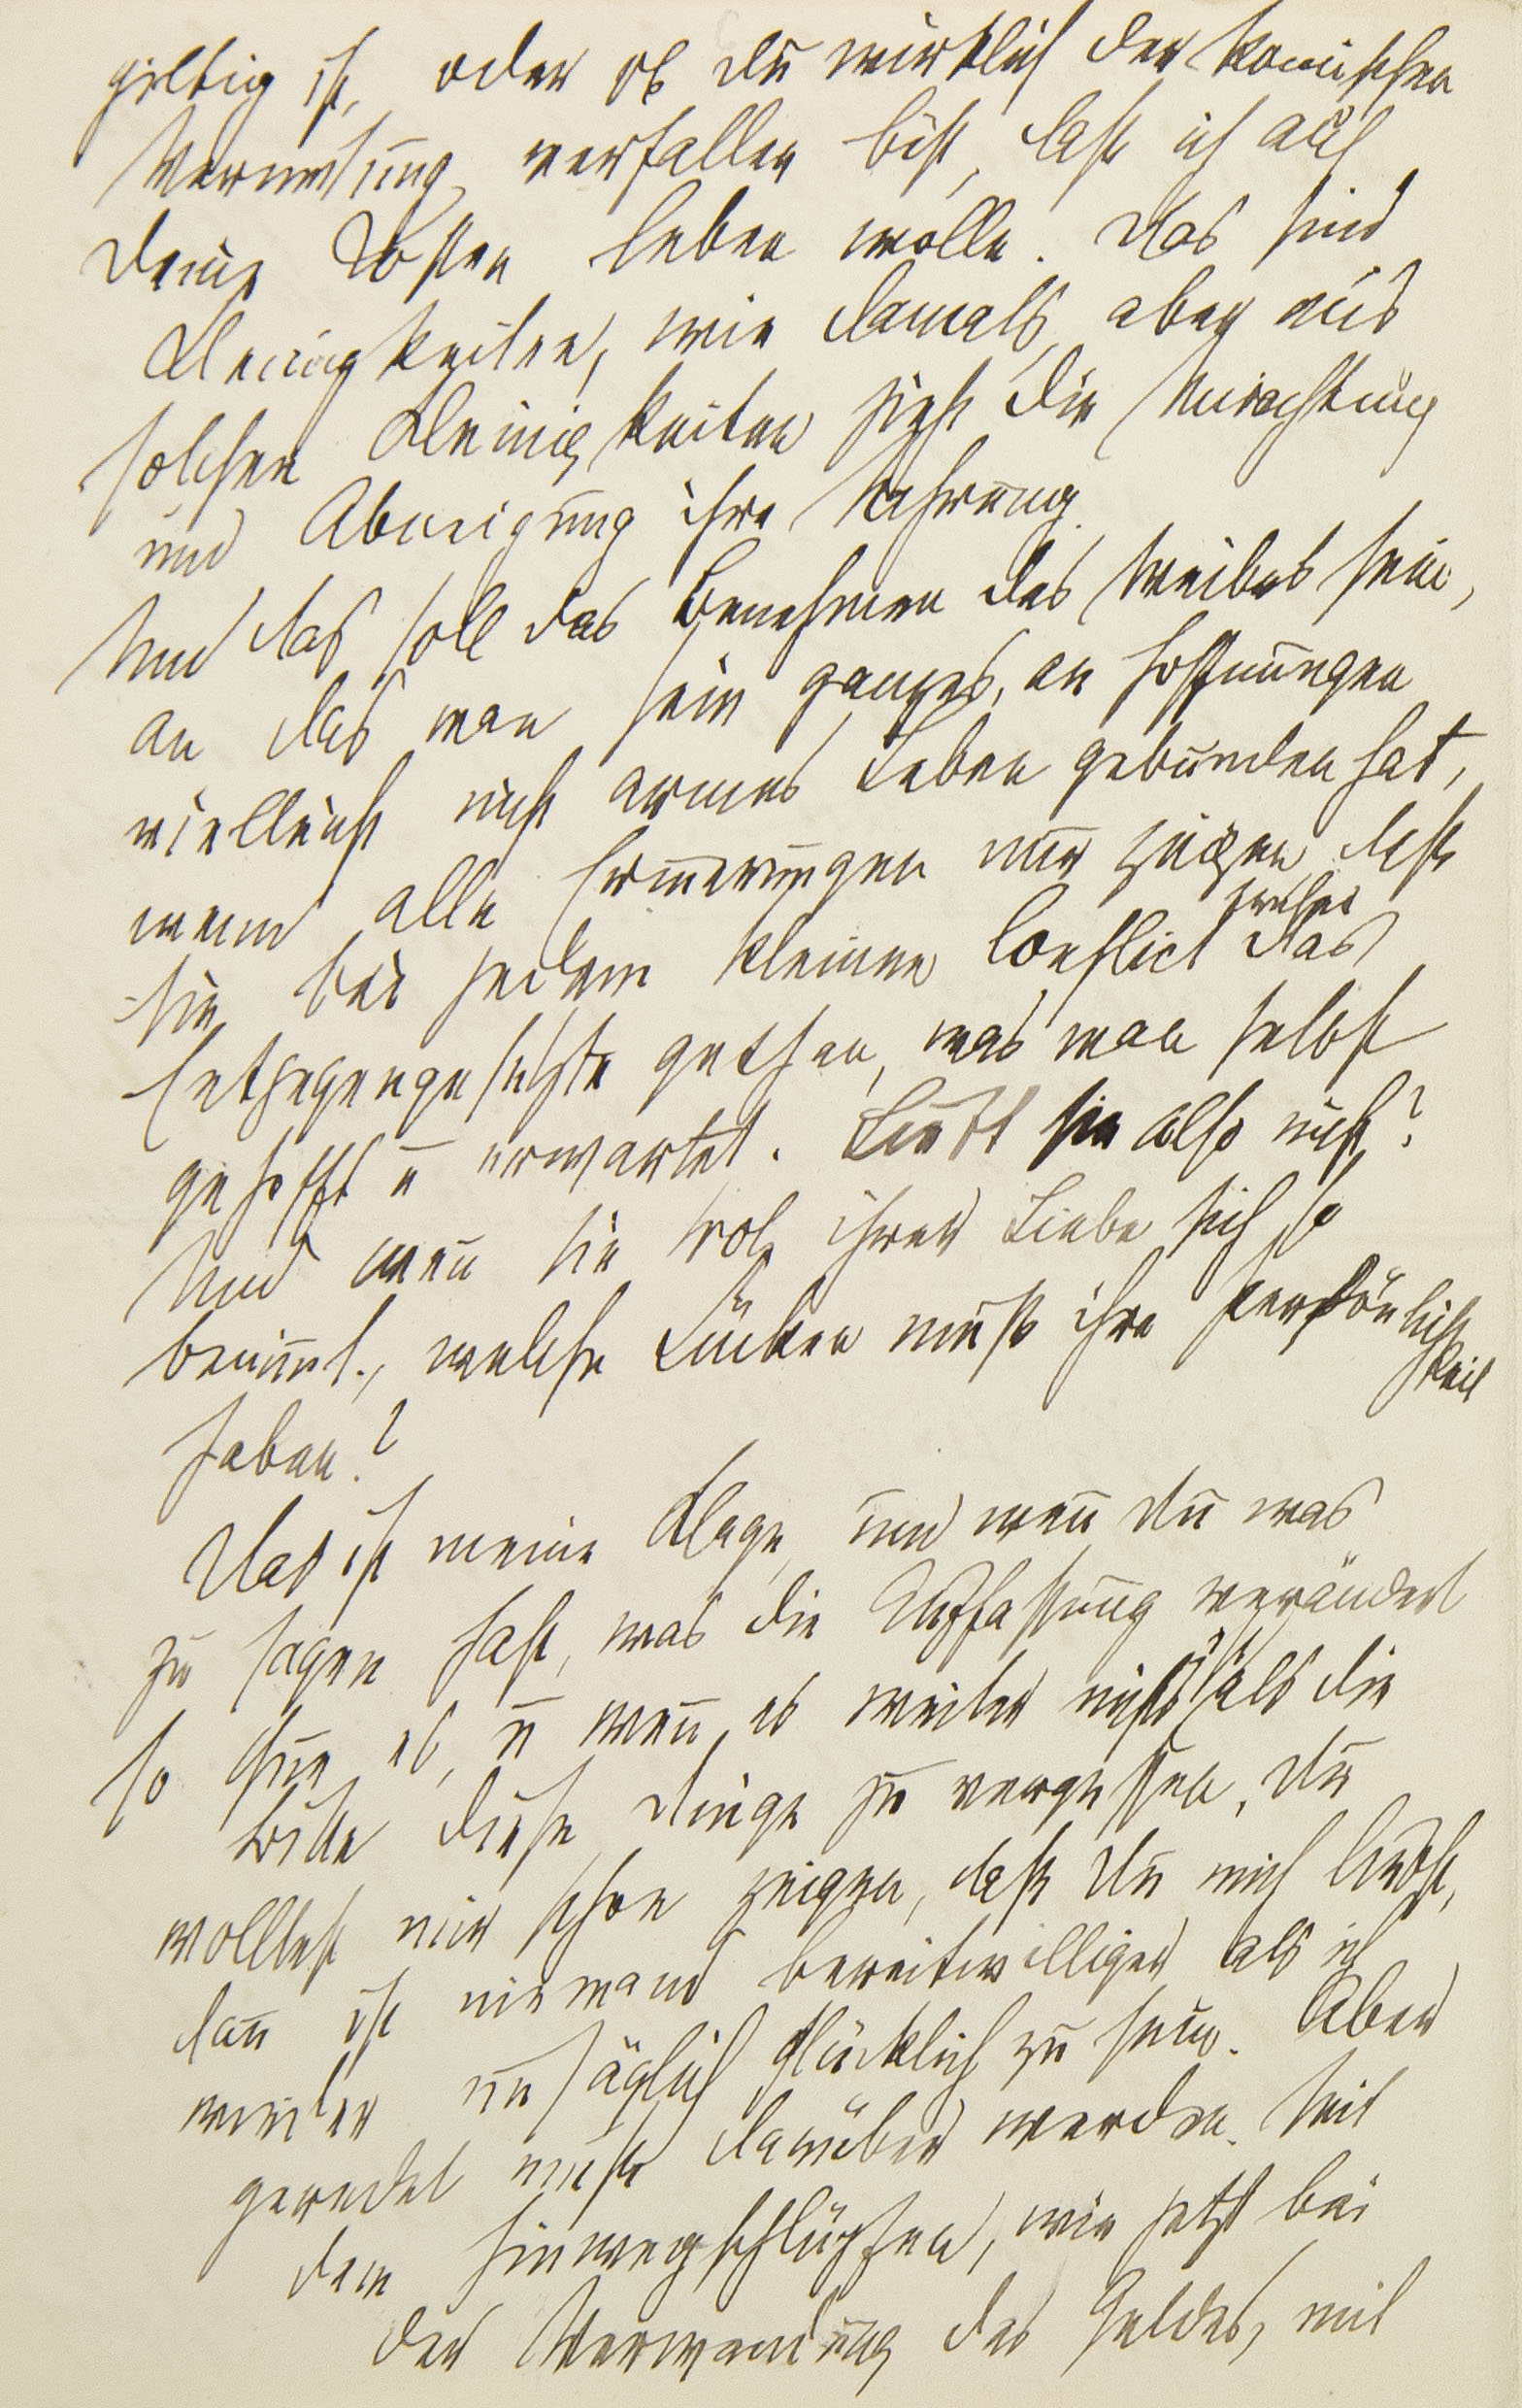 giltig ist, oder ob du wirklich der komischen
Vermuthung verfallen bist, daß ich auf
Deine Kosten leben wolle. Das sind
Kleinigkeiten, wie damals, aber aus
solchen Kleinigkeiten zieht die Mißachtung
und Abneigung ihre Nahrung.
Und das soll das Benehmen des Weibes sein,
an das man sein ganzes, an Hoffnungen
vielleicht nicht armes Leben gebunden hat,
wenn alle Erinnerungen nur zeigen, daß
sie bei jedem kleinen Conflict das
Entgegengesetzte gethan, was man selbst
gehofft u erwartet. Liebt sie also nicht?
Und wenn sie trotz ihrer Liebe sich so
benimmt, welche Lücken muß ihre Persönlich
keit
haben?
Das ist meine Klage, und wenn Du was
zu sagen hast, was die Auffassung verändert
so thue es, u wenn es weiter nichts ist als die
Bitte diese Dinge zu vergessen, Du
wolltest mir schon zeigen, daß Du mich liebst,
dann ist niemand bereitwilliger als ich
wieder unsäglich glücklich zu sein. Aber
geredet muß darüber werden. Mit
dem Hinwegschlüpfen, wie jetzt bei
der Verwendung des Geldes, mit